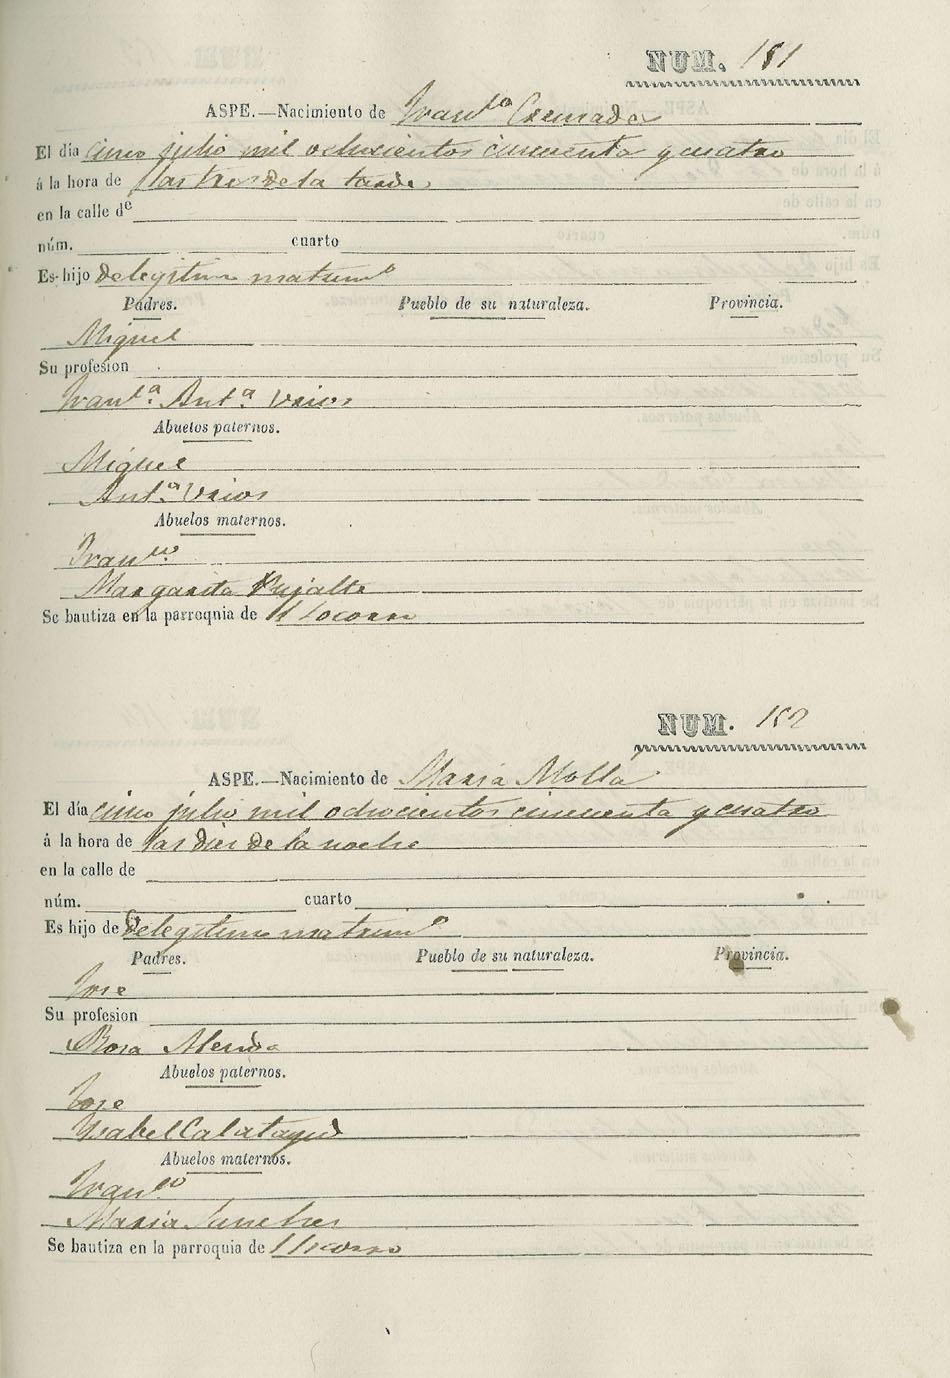 NUM. 151
ASPE.—Nacimiento de Franco Cremades
El día cinco julio mil ochocientos cincuenta y cuatro
á la hora de las tres de la tarde
en la calle de
núm. cuarto
Es hijo de legitimo matrimo
Padres. Pueblo de su naturaleza. Provincia.
Miguel
Su profesion
Franca. Anta.
Abuelos paternos.
Miguel
Anta.
Abuelos maternos.
Franco.
Margarita Pujalte
Se bautiza en la parroquia de Socorro
NUM. 152
ASPE.—Nacimiento de Maria Mollá
El día cinco julio mil ochocientos cincuenta y cuatro
á la hora de las dies de la noche
en la calle de
núm. cuarto
Es hijo de de legitimo matrimo
Padres. Pueblo de su naturaleza. Provincia.
Jose
Su profesion
Rosa
Abuelos paternos.
Jose
Ysabel Calatayud
Abuelos maternos.
Franco
Maria Sanches
Se bautiza en la parroquia de Socorro